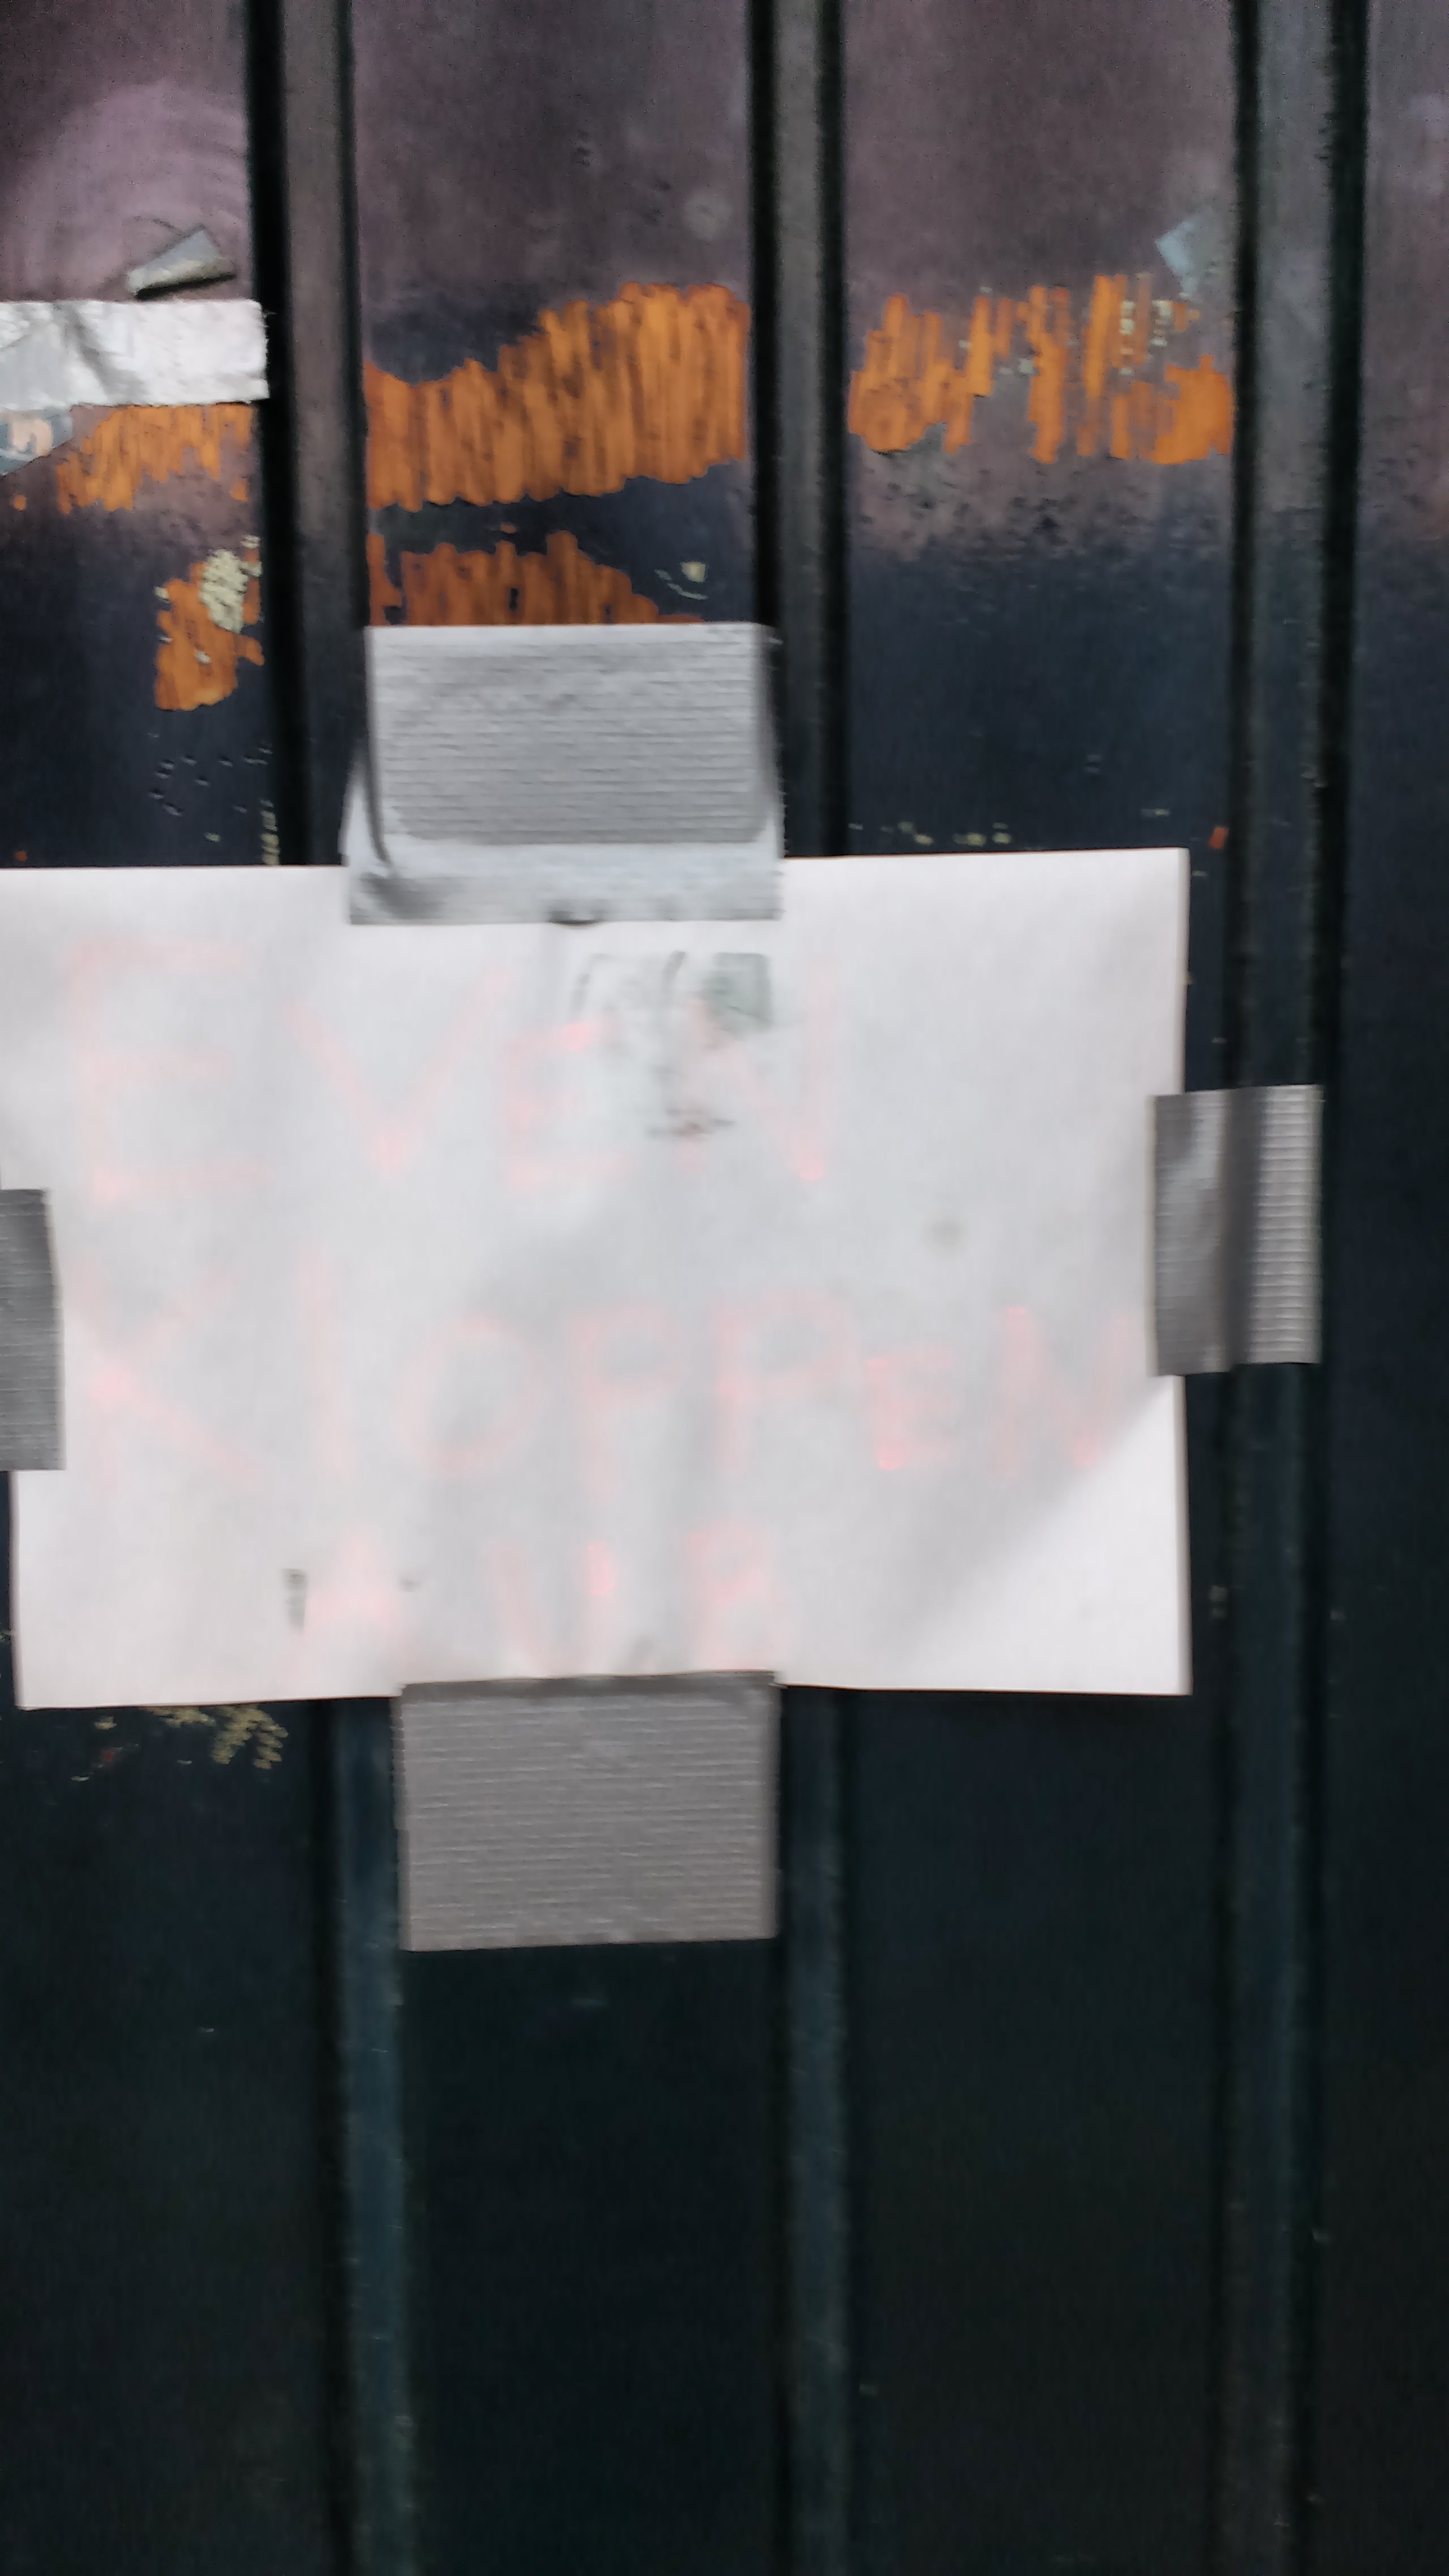 EVEN
KlOPPEN
AUB